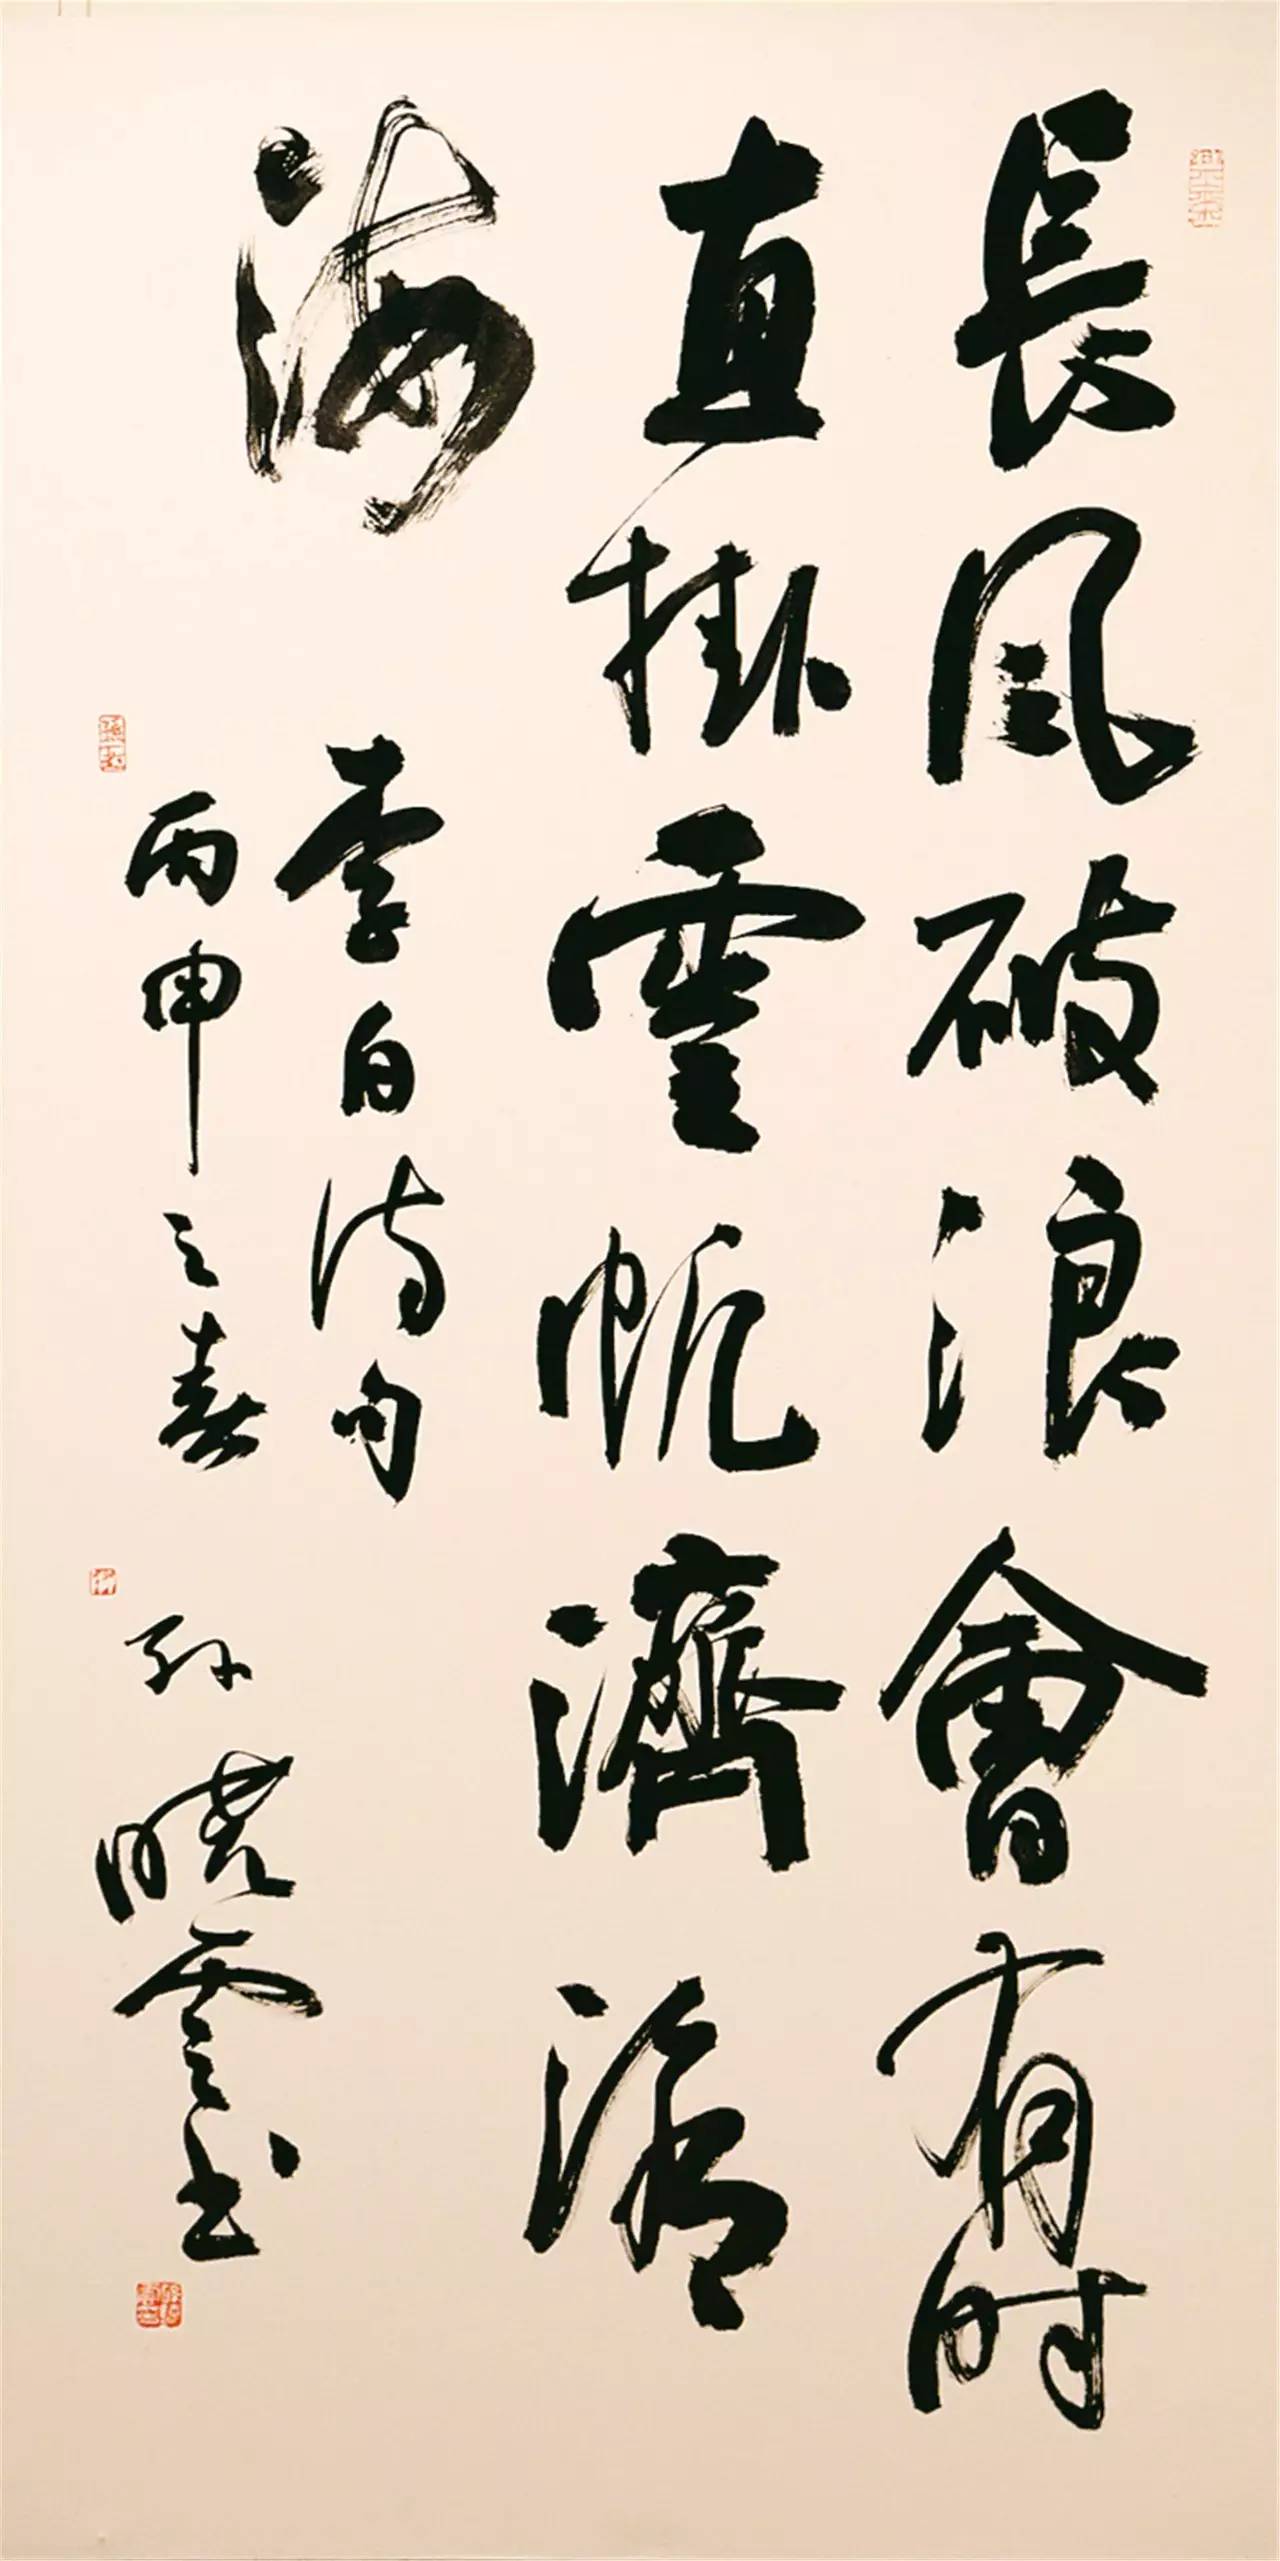 長風破浪會有時
直掛雲帆濟滄
海
李白詩句
丙申之春
孫曉雲書